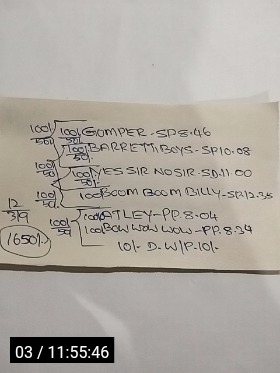 100/ 100/ GOMPER - SP8.46
50/ 50/
100/ BARRETTIBOYS - SP10.08
100/ 50/
50/ 100/ YES SIR NO SIR - SD.11.00
50/
100/ 100/ BOOM BOOM BILLY - SP.12.35
50/
12 100/ 100/ ATLEY - PP.8.04
319 50/ 100/ BOW WOW WOW - PP.8.34
1650/- 10/- D. W/P. 10/-
03 / 11:55:46